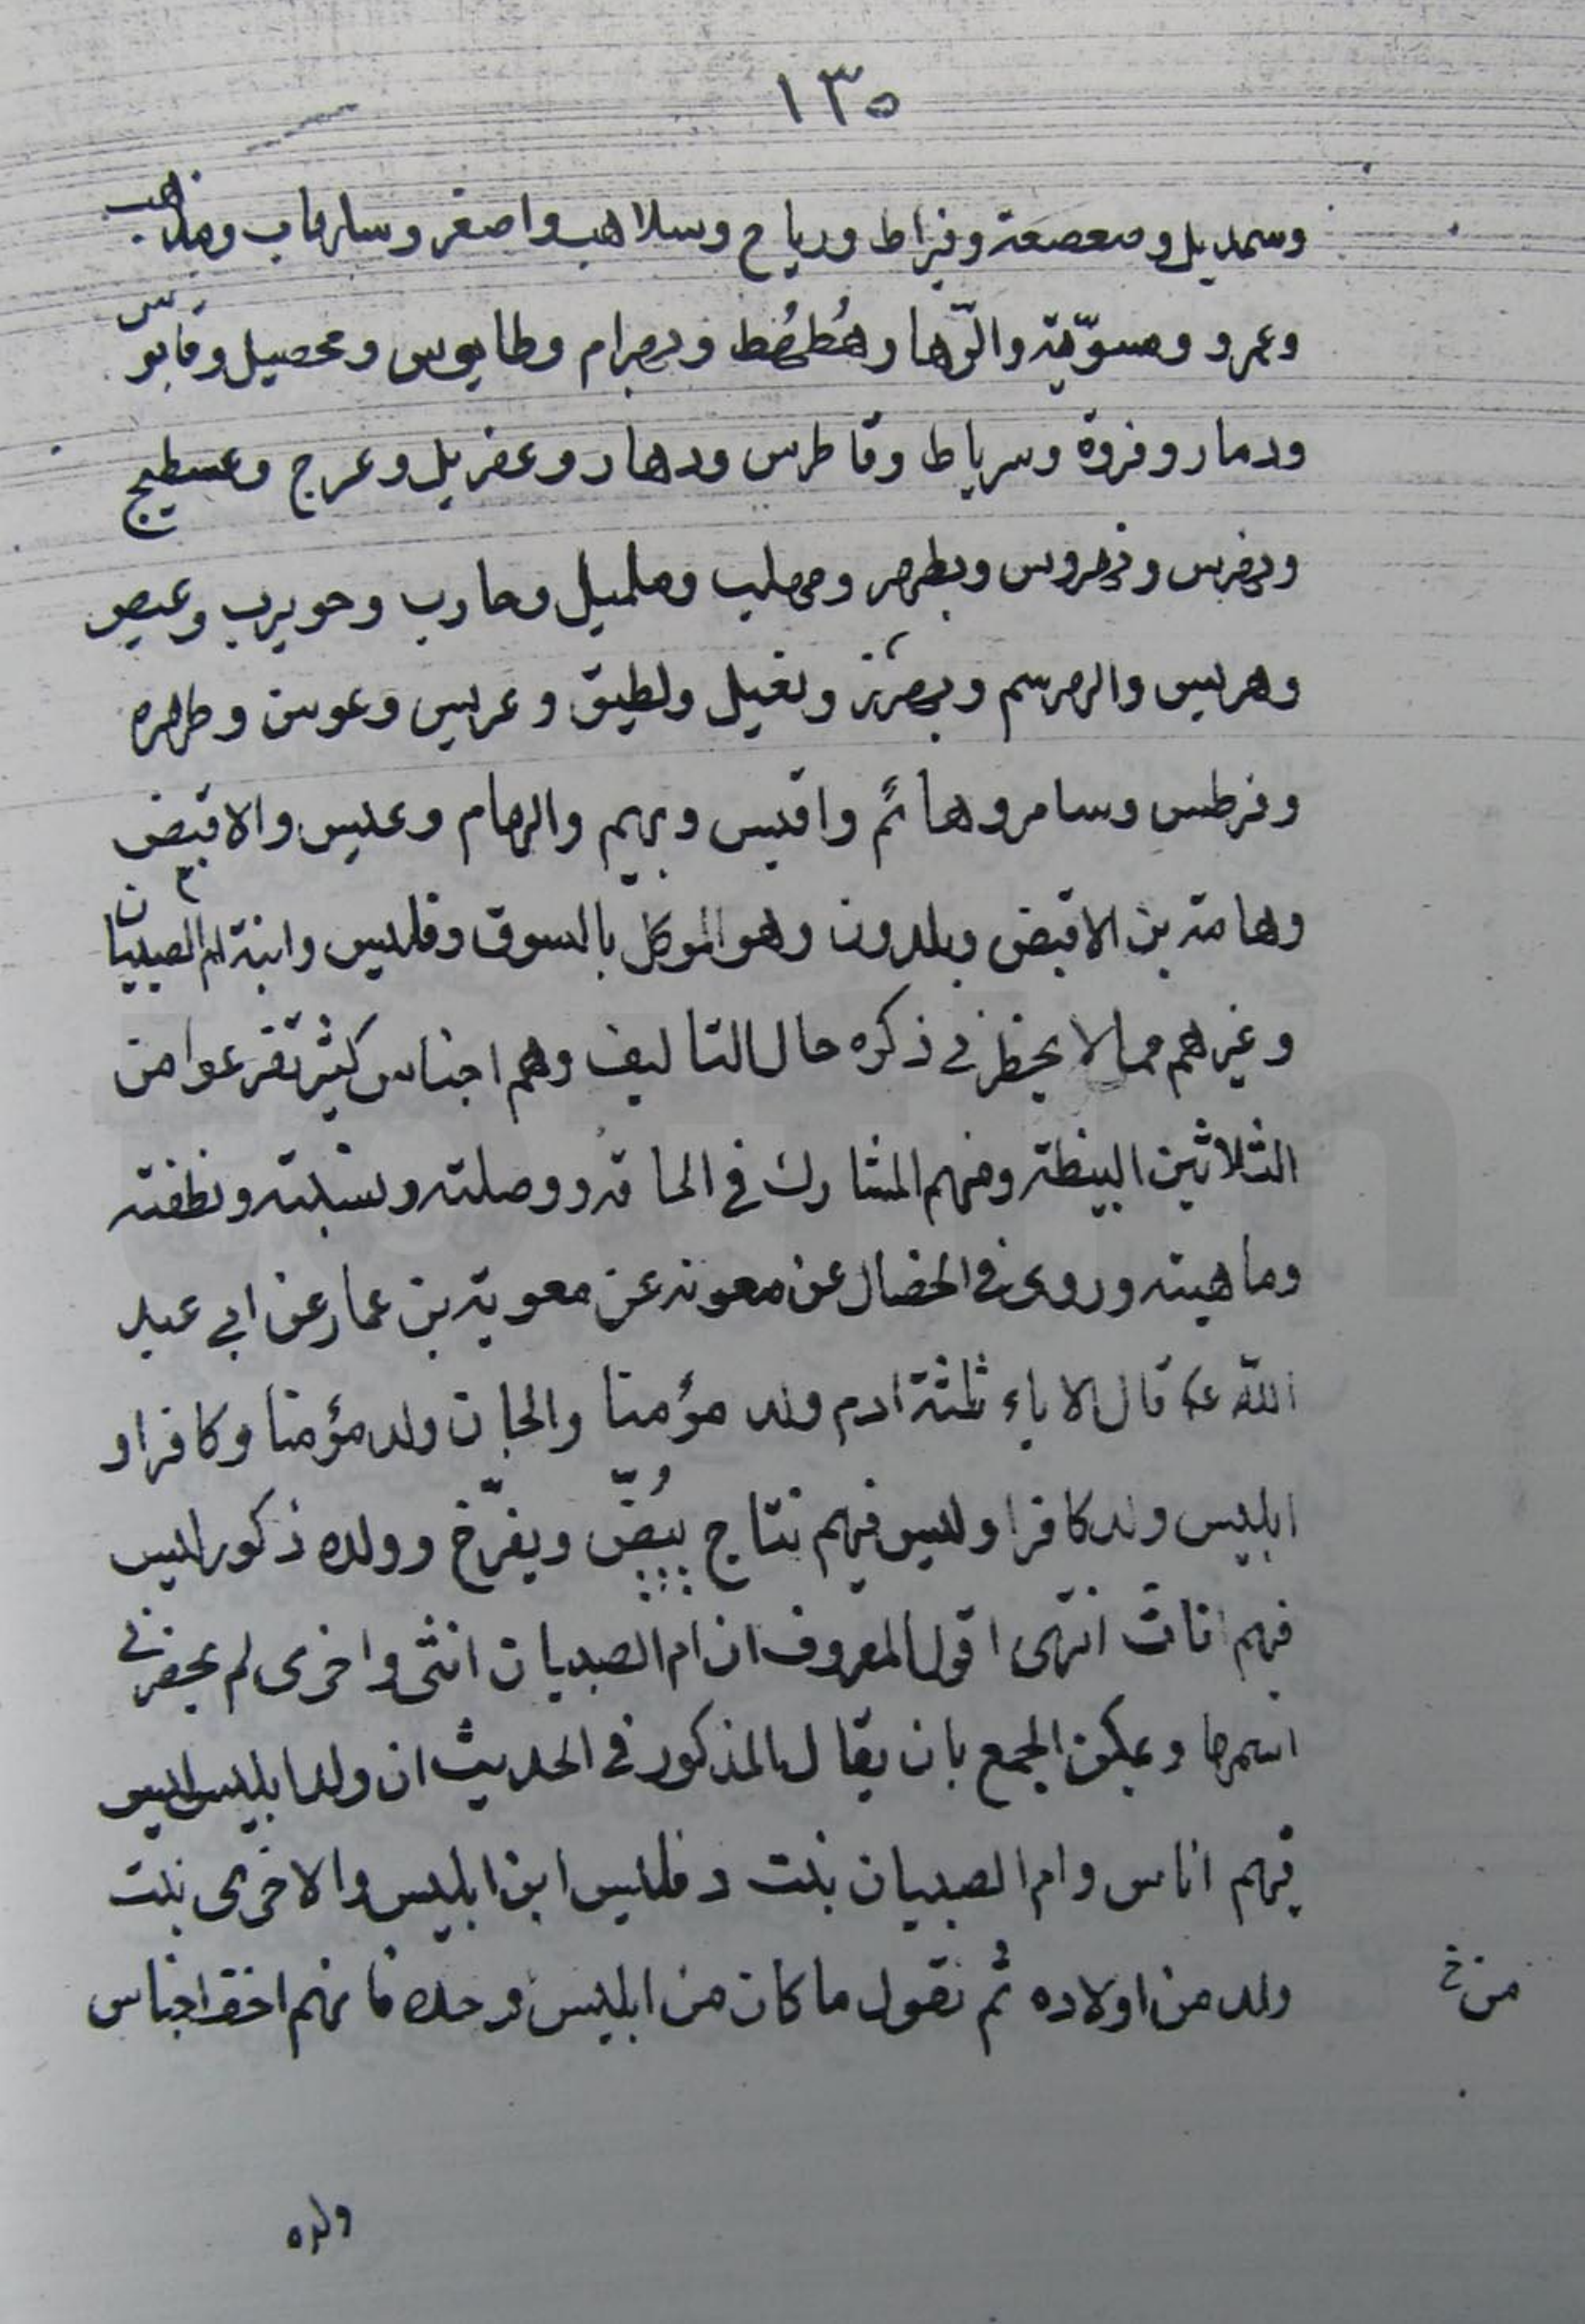 ١٣٥
وسمديل وصعصعة وفراط ورياح وسلاهب واصفر وسارقاب ومذهب
وعمرو ومسويّة والرّها وهُطهُط وبهرام وطايوس ومحصيل وقابوس
ودمار وفروة وسرياط وقاطرس ودهار وعفريل وعرج وعسطيج
ومهلب وململيل وحارب وحويرب وعيص
ونغيل ولطيق وعريس وعوسن
وفرطس وسامر وهائم واقيس وبهيم والرهام وعديس والاقبض
وهامة بن الاقبض وبلدون وهو الموكل بالسوق وفلديس وابنة ام الصبيان
وغيرهم مما لا يحظر في ذكره حال التاليف وهم اجناس كثير تفرعوا من
الثلاثين البيظة ومنهم المشارك في الحاقه ووصلته ونسبته ونطفته
وماهيته وروى في الخصال عن معونه عن معوية بن عمار عن ابي عبد
الله ع قال الاباء ثلثة ادم ولد مؤمنا والجان ولد مؤمنا وكافرا و
ابليس ولد كافرا وليس فيهم نتاج يبُضّ ويفرّخ وولده ذكور ليس
فيهم اناث انتهى اقول المعروف ان ام الصبيان انثى واخرى لم يحضرني
اسمها ويمكن الجمع بان يقال المذكور في الحديث ان ولد ابليس ليس
فيهم اناس وام الصبيان بنت دفلديس ابن ابليس والاخرى بنت
ولد من اولاده ثم نقول ما كان من ابليس وحده فانهم اخقر اجناس
من خ
ولده